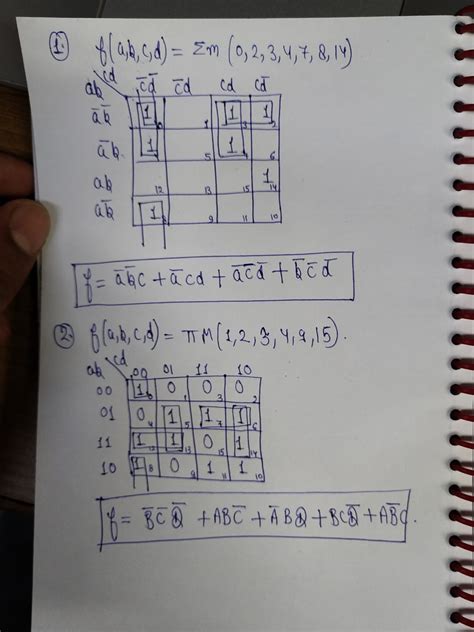 1. f(a,b,c,d) = Σm (0,2,3,4,7,8,14)
ab cd c̅d̅ c̅d cd cd̅
a̅b̅ 1 0 1 1 3 1 2
a̅b 1 5 1 6
ab 12 13 15 1 14
ab̅ 1 8 9 11 10
f = a̅b̅c + a̅cd + a̅c̅d̅ + b̅c̅d̅
2. f(a,b,c,d) = πM(1,2,3,4,9,15).
ab cd 00 01 11 10
00 1 0 0 1 0 3 0 2
01 0 4 1 5 1 7 1 6
11 1 12 1 13 0 15 1 14
10 1 8 0 9 1 11 1 10
f = B̅C̅D̅ + ABC̅ + A̅BD + BCD̅ + AB̅C.